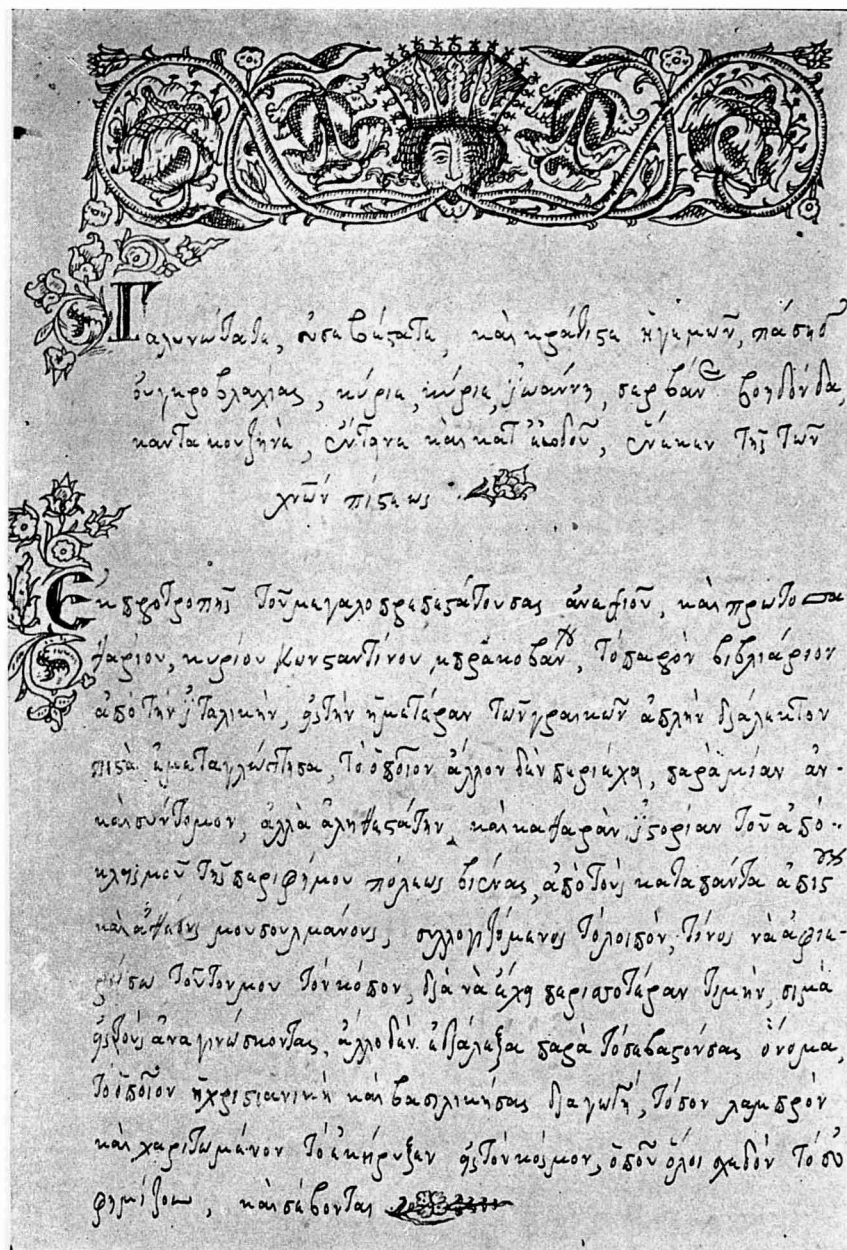 Γαληνώτατε, εὐσεβέστατε, καὶ κράτιστε ἡγεμὼν, πάσης
οὑγκροβλαχίας, κύριε, κύριε, ἰωάννη, σερβάνε βοηβόνδα,
καντακουζηνὲ, ἔντηνε καὶ κατ' ἐχθρῶν, ἕνεκεν τῆς τῶν
χνῶν πίστεως
Ἐκ προτροπῆς τοῦ μεγαλοπρεπεστάτου σας ἀνεψιοῦ, καὶ πρωτοσπα
θαρίου, κυρίου κωνσταντίνου μπράκοβάνου, τὸ παρὸν βιβλιάριον
ἀπὸ τὴν ἰταλικὴν, εἰς τὴν ἡμετέραν τῶν γραικῶν ἁπλὴν διάλεκτον
πιστὰ ἐμεταγλώττησα, τὸ ὁποῖον ἄλλον δὲν περιέχει, παρὰ μίαν ἂν
καὶ σύντομον, ἀλλὰ ἀληθεστάτην, καὶ καθαρὰν ἰστορίαν τοῦ ἀπο
κλησμοῦ τῆς περιφήμου πόλεως βιένας, ἀπὸ τοὺς κατὰ πάντα ἀπίστους
καὶ ἀθέους μουσουλμάνους, συλλογιζόμενος τὸ λοιπὸν, τίνος νὰ ἀφιε
ρώσω τοῦτον μου τὸν κόπον, διὰ νὰ ἔχῃ περισσοτέραν τιμὴν, σιμὰ
εἰς τοὺς ἀναγινώσκοντας, ἄλλο δὲν ἐδιάλεξα παρὰ τὸ σεβαστόν σας ὄνομα,
τὸ ὁποῖον ἡ χριστιανικὴ καὶ βασιλική σας διαγωγὴ, τόσον λαμπρὸν
καὶ χαριτωμένον τὸ ἐκήρυξεν εἰς τὸν κόσμον, ὁποῦ ὅλοι σχεδὸν τὸ εὐ
φημίζουν, καὶ σέβονται